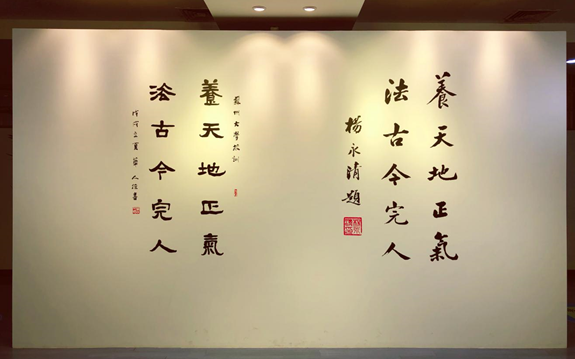 養天地正氣
法古今完人
楊永清題
蘇州大學校訓
養天地正氣
法古今完人